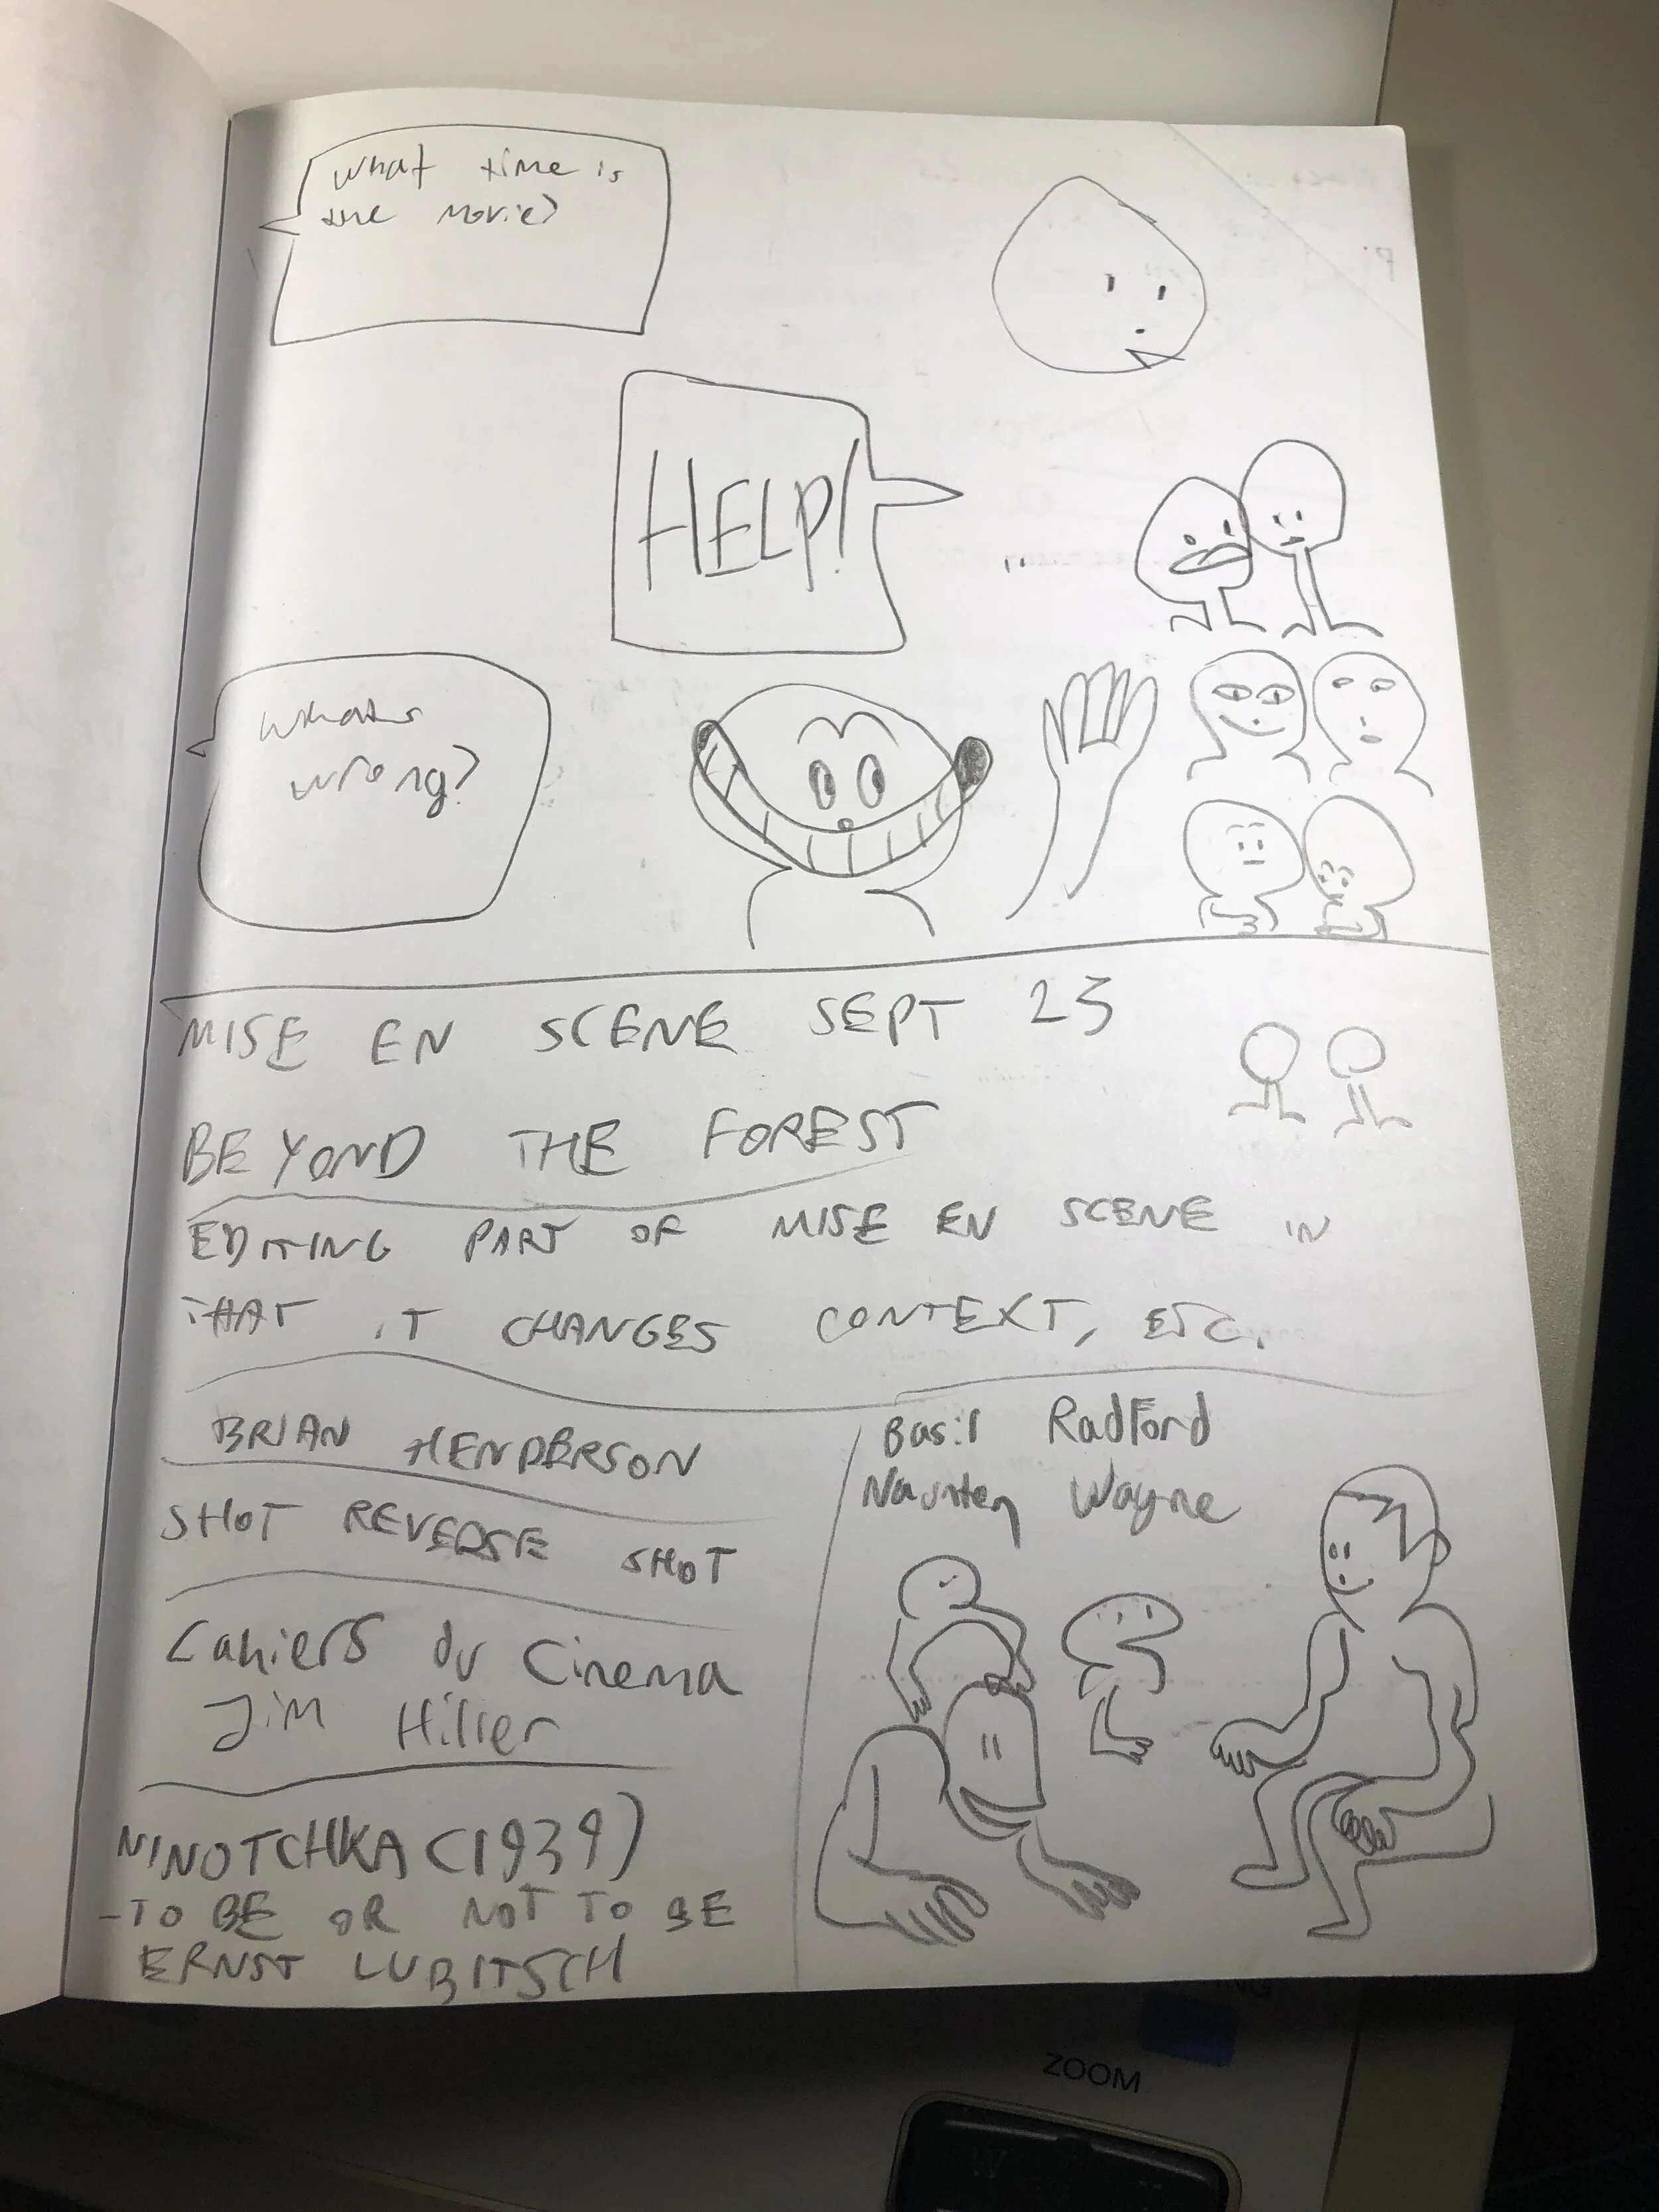 What time is
the movie?
HELP!
Whats
wrong?
MISE EN SCENE SEPT 23
BEYOND THE FOREST
EDITING PART OF MISE EN SCENE IN
THAT IT CHANGES CONTEXT, ETC.
BRIAN HENDERSON
SHOT REVERSE SHOT
Cahiers du Cinema
Jim Hillier
NINOTCHKA (1939)
-TO BE OR NOT TO BE
ERNST LUBITSCH
Basil Radford
Naunten Wayne
ZOOM